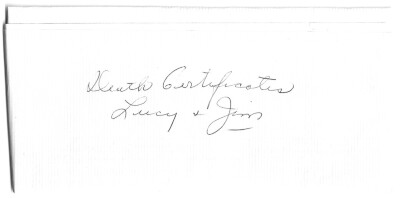 Death Certificates
Lucy & Jim